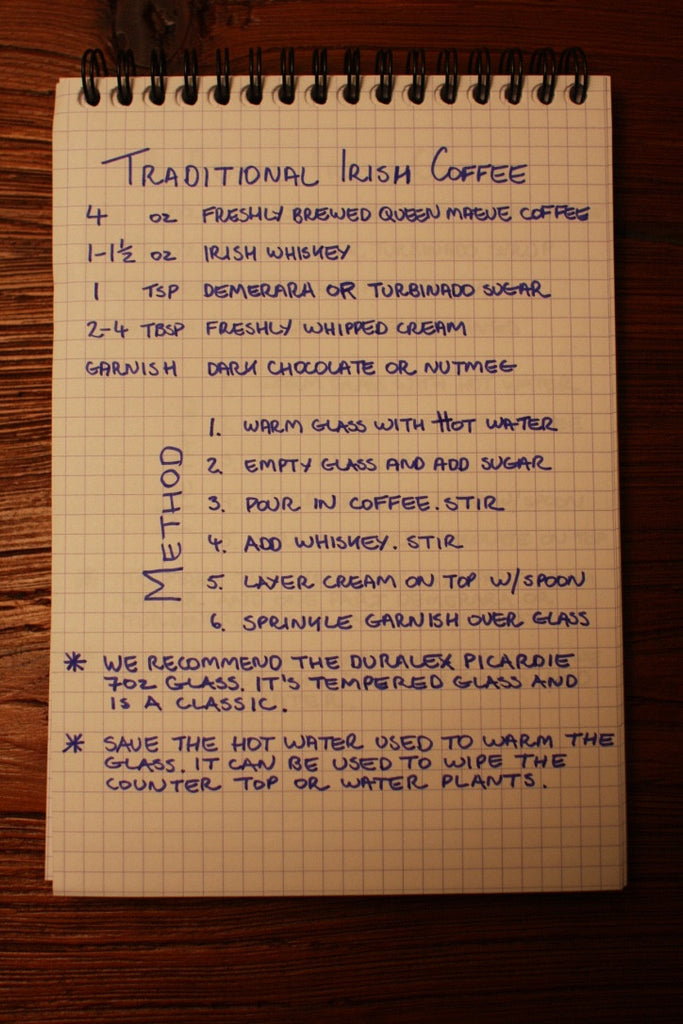 TRADITIONAL IRISH COFFEE
4 OZ FRESHLY BREWED QUEEN MAEVE COFFEE
1-1½ OZ IRISH WHISKEY
1 TSP DEMERARA OR TURBINADO SUGAR
2-4 TBSP FRESHLY WHIPPED CREAM
GARNISH DARK CHOCOLATE OR NUTMEG
METHOD
1. WARM GLASS WITH HOT WATER
2. EMPTY GLASS AND ADD SUGAR
3. POUR IN COFFEE. STIR
4. ADD WHISKEY. STIR
5. LAYER CREAM ON TOP W/SPOON
6. SPRINKLE GARNISH OVER GLASS
* WE RECOMMEND THE DURALEX PICARDIE
7OZ GLASS. IT'S TEMPERED GLASS AND
IS A CLASSIC.
* SAVE THE HOT WATER USED TO WARM THE
GLASS. IT CAN BE USED TO WIPE THE
COUNTER TOP OR WATER PLANTS.